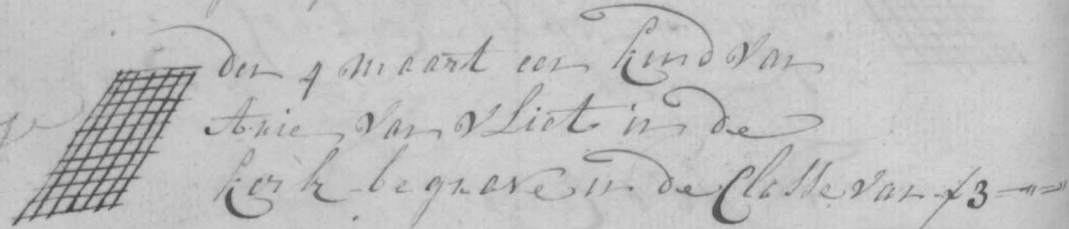 den 4 maart een kind van
Arie van vliet in de
kerk begrave in de Classe van f3-"-"